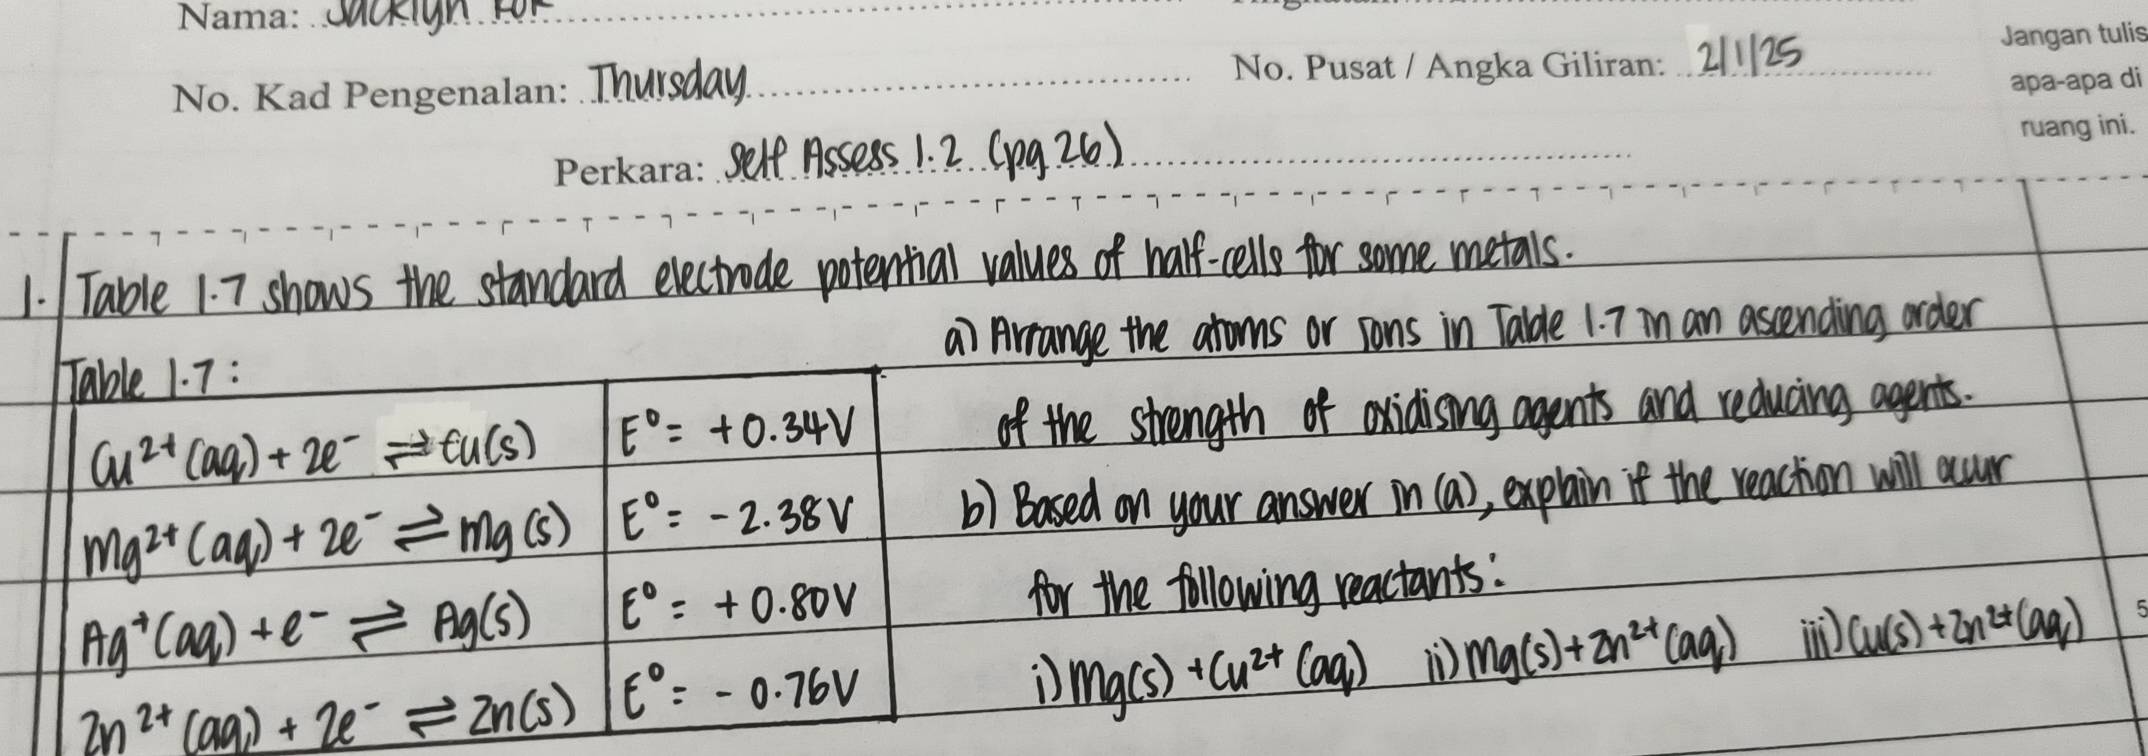 Nama: Jacklyn
No. Kad Pengenalan: Thursday
No. Pusat / Angka Giliran: 2/1/25
Jangan tulis
apa-apa di
ruang ini.
Perkara: Self Assess 1.2 (pg 26)
1. Table 1.7 shows the standard electrode potential values of half-cells for some metals.
Table 1.7:
Cu²⁺(aq) + 2e⁻ ⇌ Cu(s) E⁰ = +0.34V
Mg²⁺(aq) + 2e⁻ ⇌ Mg(s) E⁰ = -2.38V
Ag⁺(aq) + e⁻ ⇌ Ag(s) E⁰ = +0.80V
Zn²⁺(aq) + 2e⁻ ⇌ Zn(s) E⁰ = -0.76V
a) Arrange the atoms or ions in Table 1.7 in an ascending order
of the strength of oxidising agents and reducing agents.
b) Based on your answer in (a), explain if the reaction will occur
for the following reactants:
i) Mg(s) + Cu²⁺(aq) ii) Mg(s) + Zn²⁺(aq) iii) Cu(s) + Zn²⁺(aq)
5